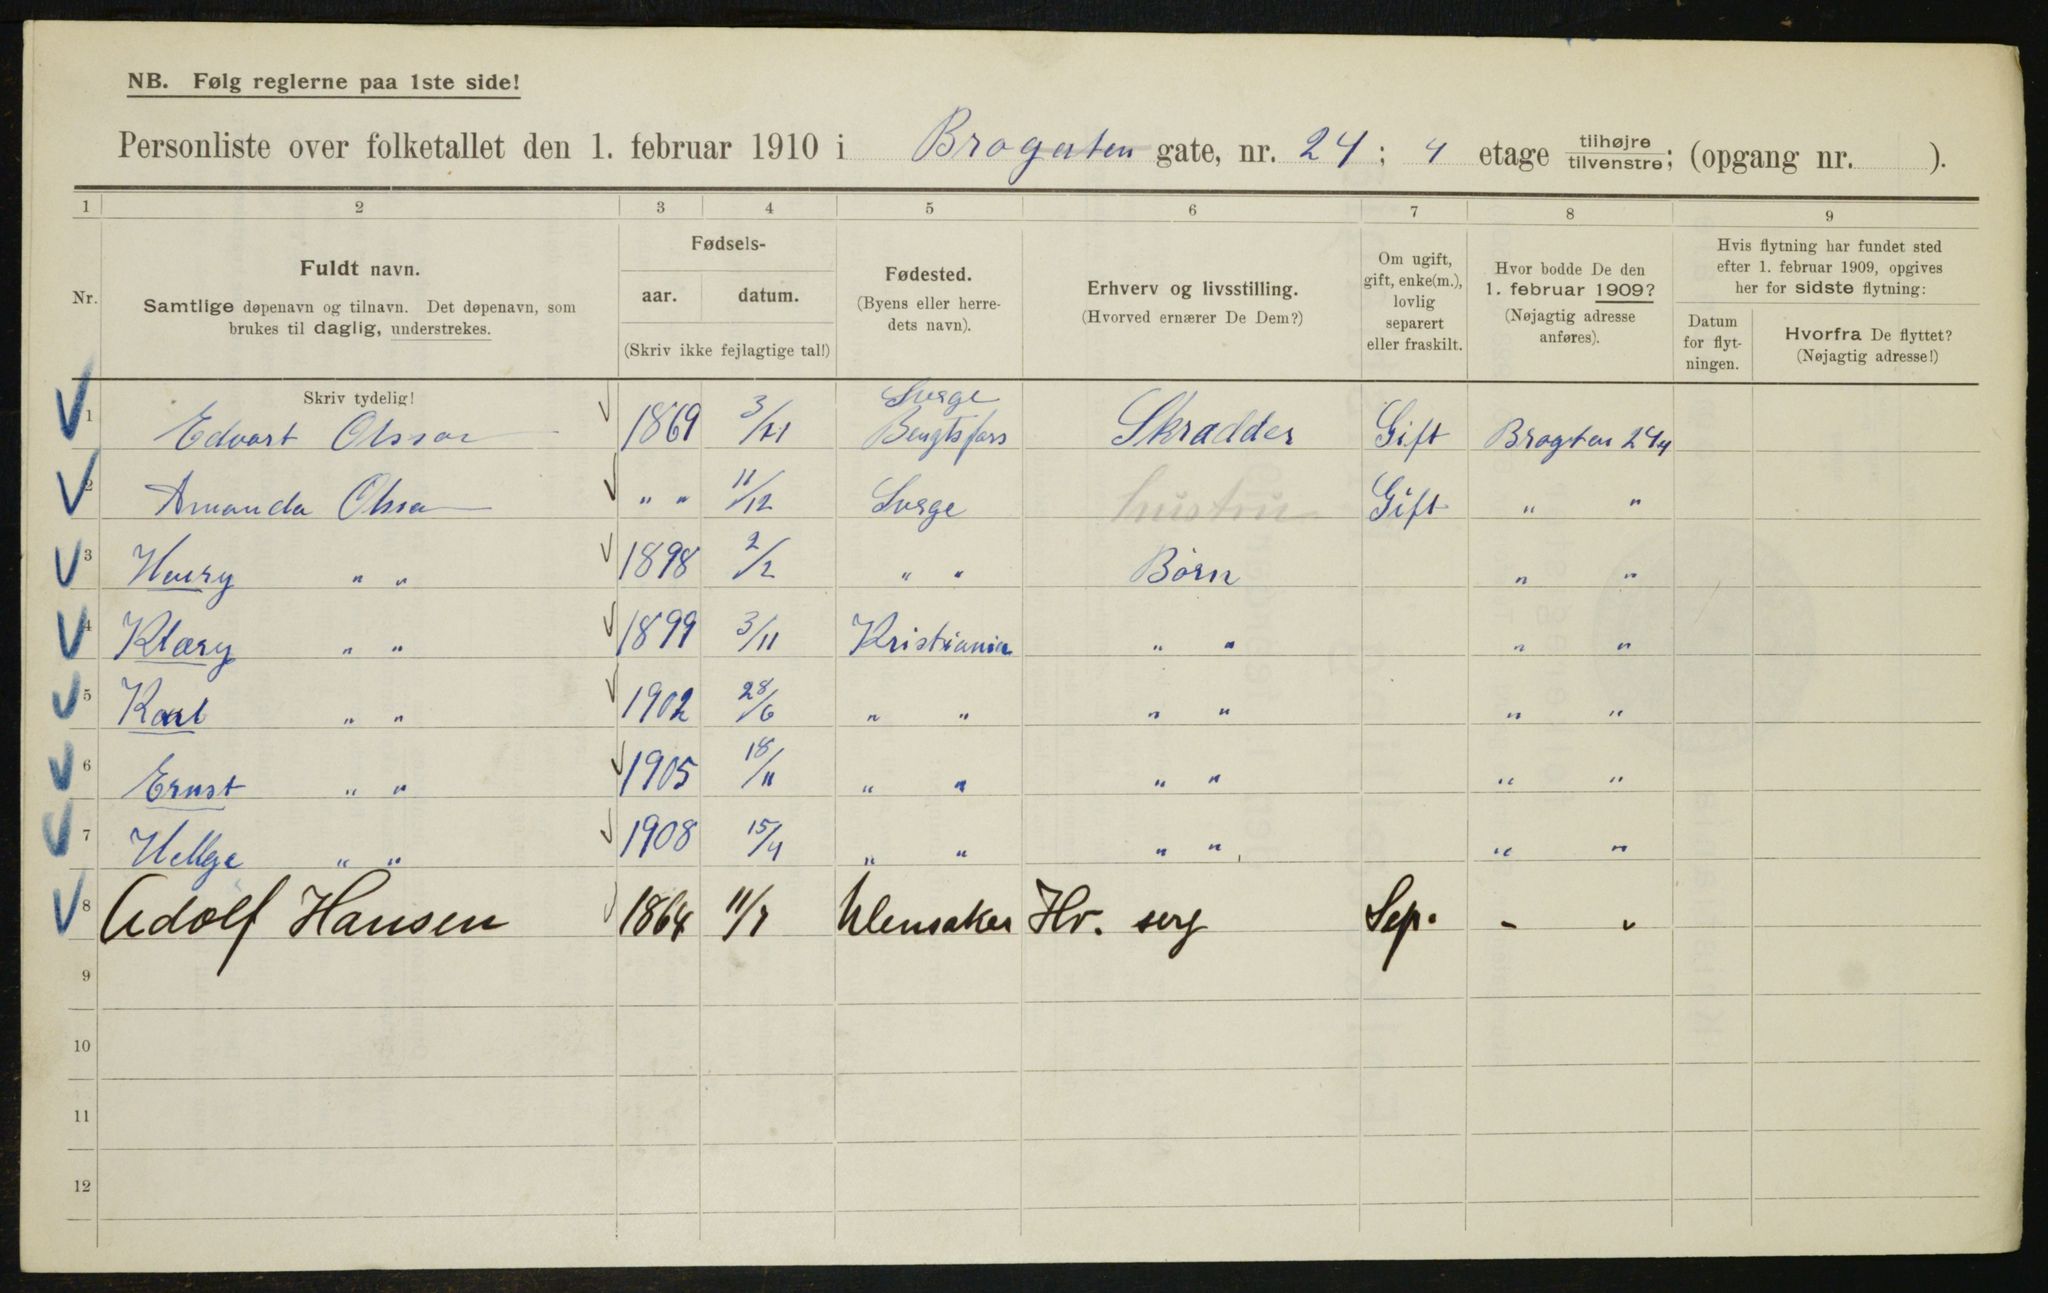 NB. Følg reglerne paa 1ste side!
Personliste over folketallet den 1. februar 1910 i Brogaten gate, nr. 24; 4 etage tilhøjre/tilvenstre; (opgang nr. ).
1 2 3 4 5 6 7 8 9
Nr.
Fuldt navn.
Samtlige døpenavn og tilnavn. Det døpenavn, som
brukes til daglig, understrekes.
Fødsels-
aar. datum.
(Skriv ikke fejlagtige tal!)
Fødested.
(Byens eller herre-
dets navn).
Erhverv og livsstilling.
(Hvorved ernærer De Dem?)
Om ugift,
gift, enke(m.),
lovlig
separert
eller fraskilt.
Hvor bodde De den
1. februar 1909?
(Nøjagtig adresse
anføres).
Hvis flytning har fundet sted
efter 1. februar 1909, opgives
her for sidste flytning:
Datum
for flyt-
ningen.
Hvorfra De flyttet?
(Nøjagtig adresse!)
Skriv tydelig!
1 Edvart Olsson 1869 3/11 Sverge Bengtsfors Skrædder Gift Brogten 24/4
2 Amanda Olsson " " 11/12 Sverge hustru Gift " "
3 Harry " " 1898 2/2 " " Børn " "
4 Klary " " 1899 3/11 Kristiania " " " "
5 Karl " " 1902 28/6 " " " " " "
6 Ernst " " 1905 18/11 " " " " " "
7 Helge " " 1908 15/4 " " " " " "
8 Adolf Hansen 1864 11/7 Ulensaker Hv. serg Sep. " "
9
10
11
12